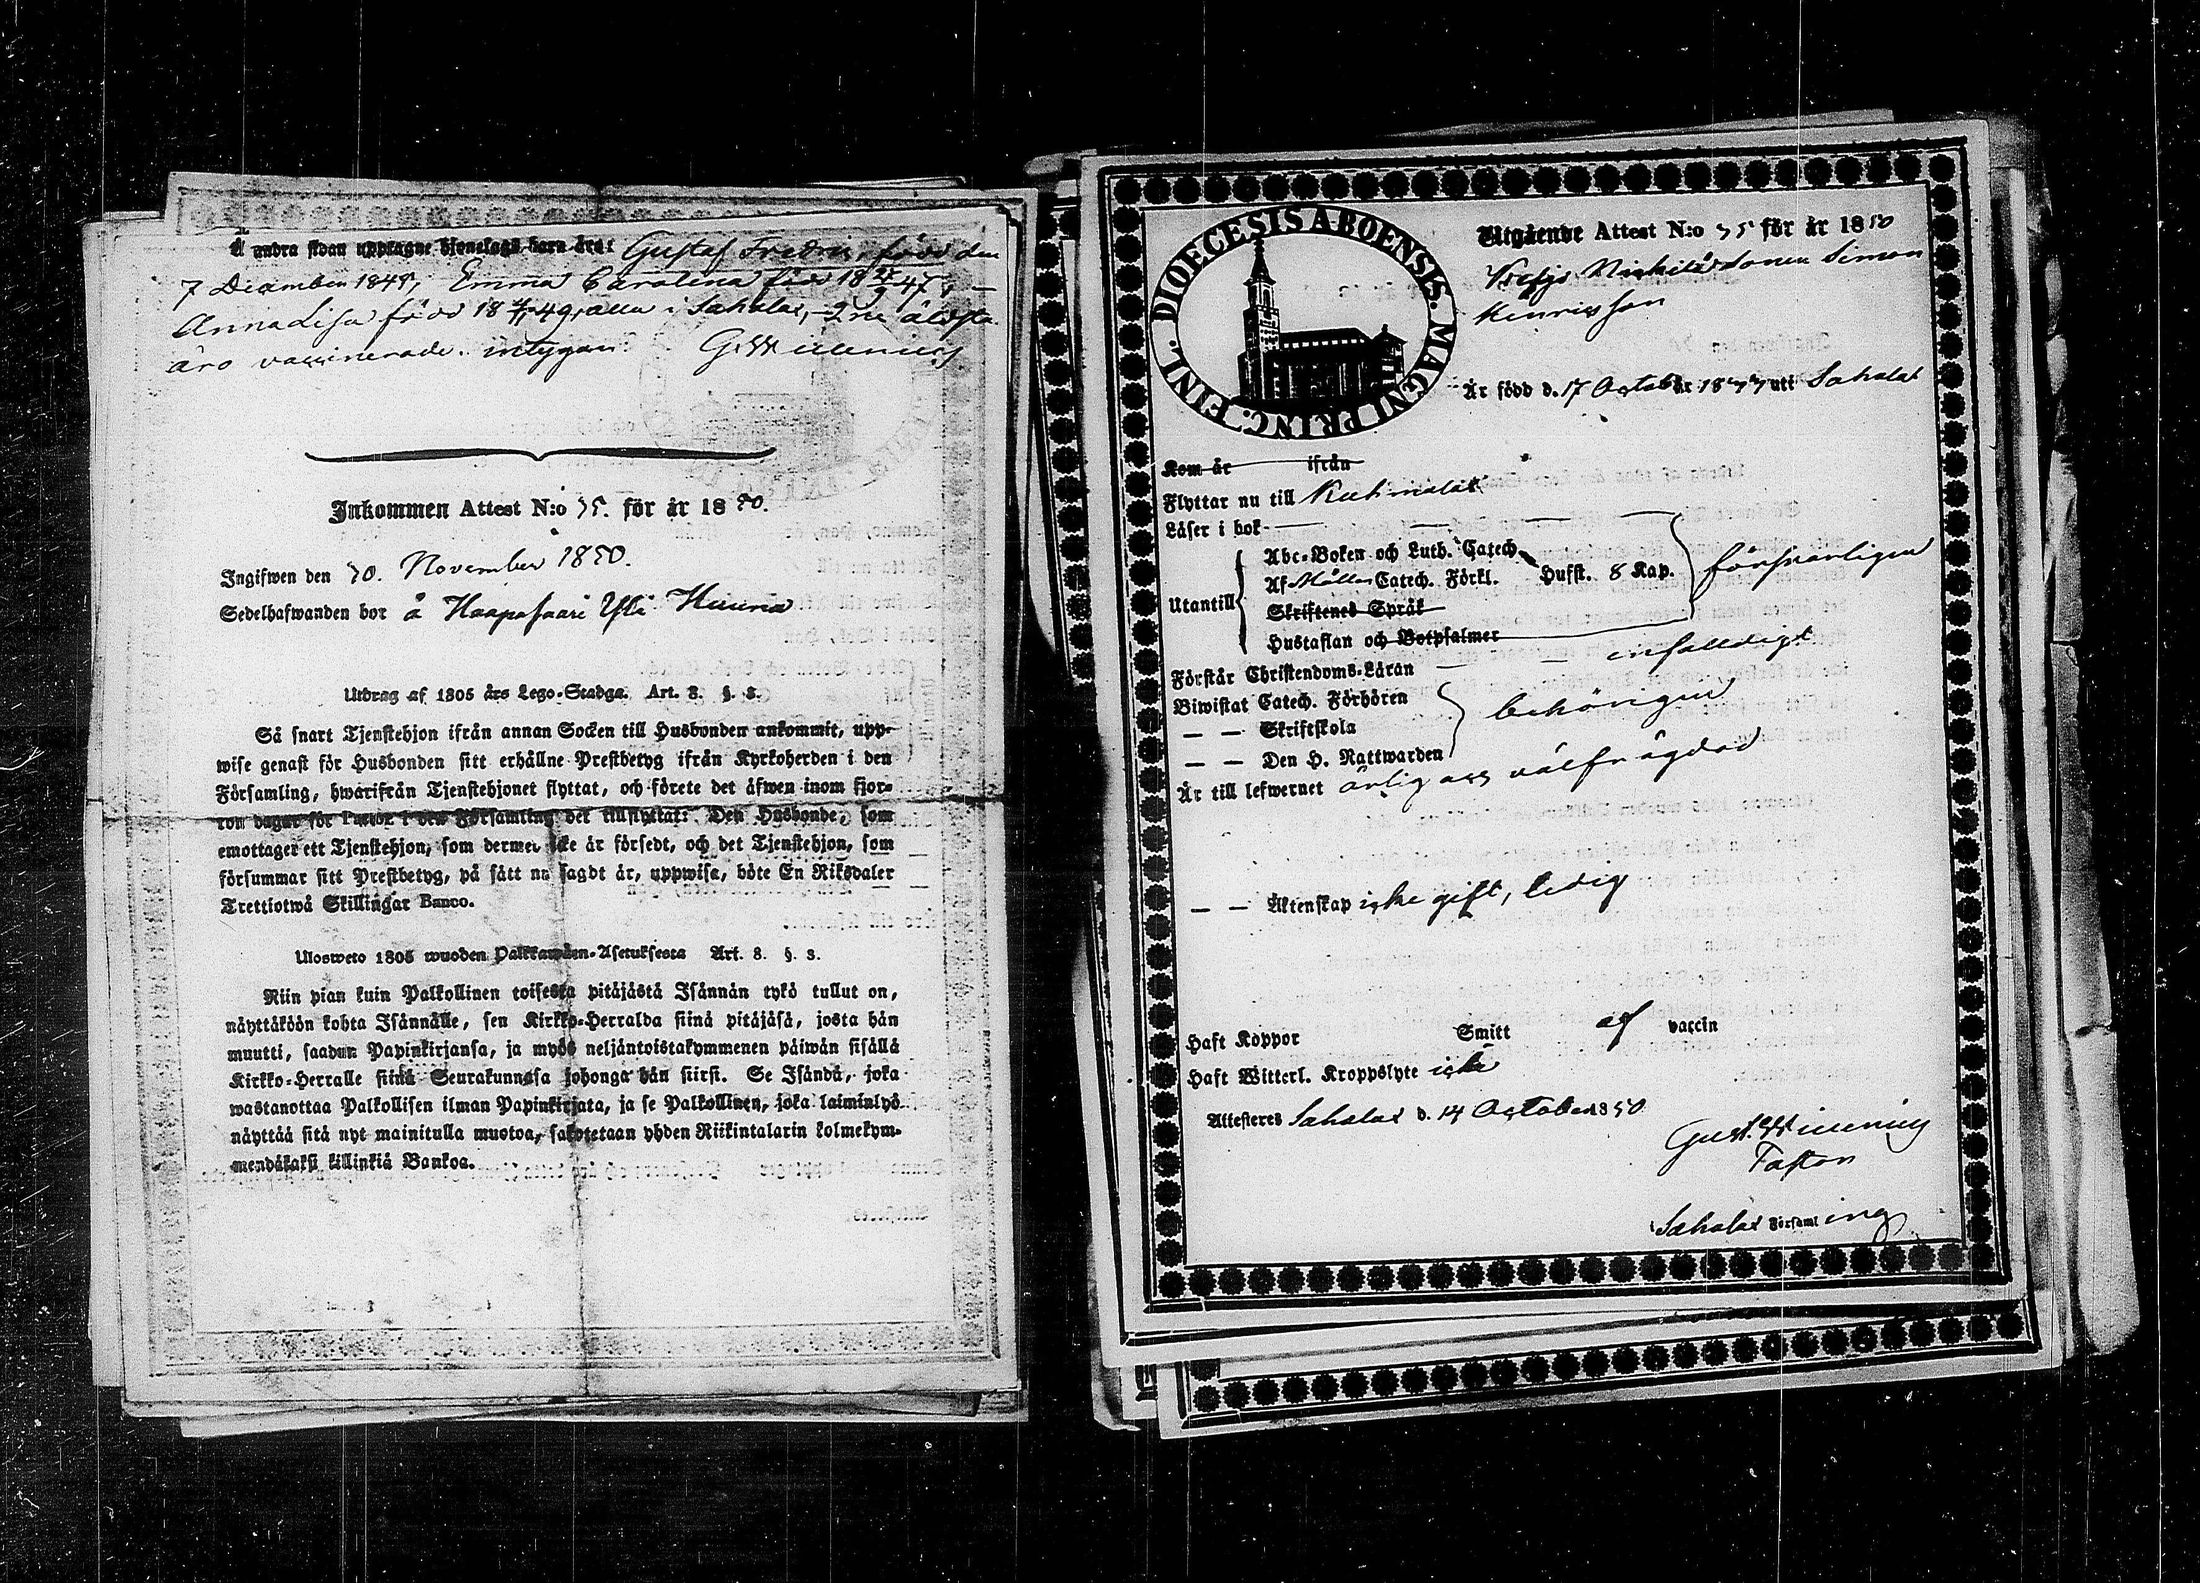 Å andra sidan upptagne hjonelags barn äro: Gustaf Fredric, född den
7 December 184, Emma Carolina född 18 47, —
Anna Lisa född 18 49, alla i Sahalax, 2ne äldsta
äro vaccinerade. intygar. G. W
Inkommen Attest N:o 35. för år 1850.
Ingifwen den 30. November 1850.
Sedelhafwanden bor å Haapasaari Yli Huuna
Utdrag af 1805 års Lego-Stadga. Art. 8. §. 3.
Så snart Tjenstehjon ifrån annan Socken till Husbonden ankommit, upp-
wise genast för Husbonden sitt erhållne Prestbetyg ifrån Kyrkoherden i den
Församling, hwarifrån Tjenstehjonet flyttat, och förete det äfwen inom fjor-
ton dagar för i den Församling det tillflyttat. Den Husbonde, som
emottager ett Tjenstehjon, som dermed icke är försedt, och det Tjenstehjon, som
försummar sitt Prestbetyg, på sätt nu sagdt är, uppwisa, böte En Riksdaler
Trettiotwå Skillingar Banco.
Ulosweto 1805 wuoden Palkkawäen-Asetuksesta Art. 8. §. 3.
Niin pian kuin Palkollinen toisesta pitäjästä Isännän tykö tullut on,
näyttäköön kohta Isännälle, sen Kirkko-Herralda siinä pitäjäsä, josta hän
muutti, saadun Papinkirjansa, ja myös neljäntoistakymmenen päiwän sisällä
Kirkko-Herralle siinä Seurakunnasa johonga hän siirsi. Se Isändä, joka
wastanottaa Palkollisen ilman Papinkirjata, ja se Palkollinen, joka laiminlyö
näyttää sitä nyt mainitulla muotoa, sakotetaan yhden Riikintalarin kolmekym-
mendäkaksi killinkiä Bankoa.
DIOECESIS ABOENSIS. MAGNI PRINC. FINL.
Utgående Attest N:o 35 för år 1850
Simon
Henricsson
Är född d. 17 Octob är 18 uti Sahalax
Kom år ifrån
Flyttar nu till Kuhmalax
Läser i bok
Utantill
Abc-Boken och Luth. Catech.
Af Möllers Catech. Förkl. Husst. 8 Kap. försvarligen
Skriftenes Språk
Hustaflan och Botpsalmer
Förstår Christendoms-Läran — — enfaldigt
Biwistat Catech. Förhören
— — Skriftskola behörigen
— — Den H. Nattwarden
Är till lefwernet ärlig och välfrägdad
— — Äktenskap icke gift, ledig
Haft Koppor Smitt af vaccin
Haft Witterl. Kroppslyte icke
Attesteras Sahalax d. 14 October 1850
Gust.
Pastor
i Sahalax Församling